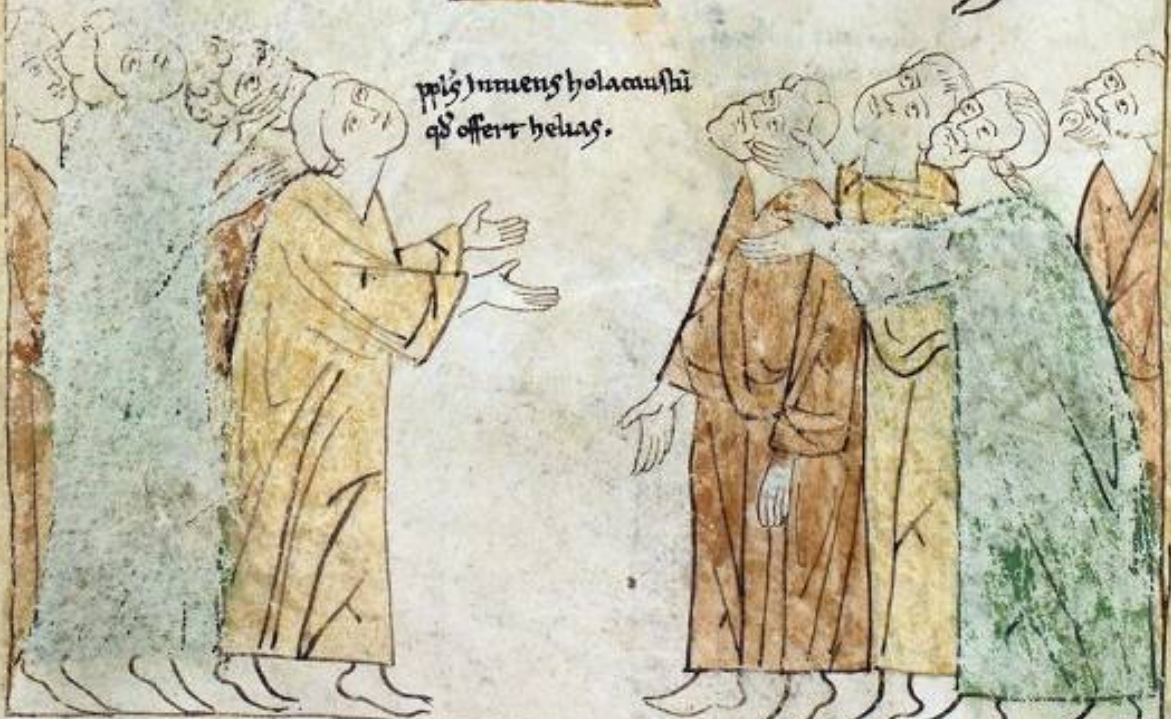 ppl's Intuens holacaustū
qđ offert helias.